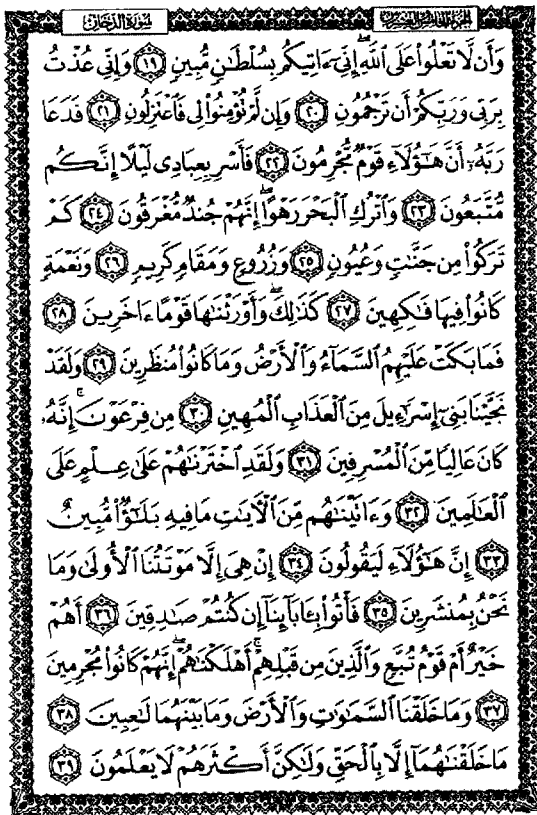 الجزء الخامس والعشرون سورة الدخان
وَأَن لَّا تَعْلُوا۟ عَلَى ٱللَّهِ ۖ إِنِّىٓ ءَاتِيكُم بِسُلْطَٰنٍ مُّبِينٍ ١٩ وَإِنِّى عُذْتُ
بِرَبِّى وَرَبِّكُمْ أَن تَرْجُمُونِ ٢٠ وَإِن لَّمْ تُؤْمِنُوا۟ لِى فَٱعْتَزِلُونِ ٢١ فَدَعَا
رَبَّهُۥٓ أَنَّ هَٰٓؤُلَآءِ قَوْمٌ مُّجْرِمُونَ ٢٢ فَأَسْرِ بِعِبَادِى لَيْلًا إِنَّكُم
مُّتَّبَعُونَ ٢٣ وَٱتْرُكِ ٱلْبَحْرَ رَهْوًا ۖ إِنَّهُمْ جُندٌ مُّغْرَقُونَ ٢٤ كَمْ
تَرَكُوا۟ مِن جَنَّٰتٍ وَعُيُونٍ ٢٥ وَزُرُوعٍ وَمَقَامٍ كَرِيمٍ ٢٦ وَنَعْمَةٍ
كَانُوا۟ فِيهَا فَٰكِهِينَ ٢٧ كَذَٰلِكَ ۖ وَأَوْرَثْنَٰهَا قَوْمًا ءَاخَرِينَ ٢٨
فَمَا بَكَتْ عَلَيْهِمُ ٱلسَّمَآءُ وَٱلْأَرْضُ وَمَا كَانُوا۟ مُنظَرِينَ ٢٩ وَلَقَدْ
نَجَّيْنَا بَنِىٓ إِسْرَٰٓءِيلَ مِنَ ٱلْعَذَابِ ٱلْمُهِينِ ٣٠ مِن فِرْعَوْنَ ۚ إِنَّهُۥ
كَانَ عَالِيًا مِّنَ ٱلْمُسْرِفِينَ ٣١ وَلَقَدِ ٱخْتَرْنَٰهُمْ عَلَىٰ عِلْمٍ عَلَى
ٱلْعَٰلَمِينَ ٣٢ وَءَاتَيْنَٰهُم مِّنَ ٱلْءَايَٰتِ مَا فِيهِ بَلَٰٓؤٌا۟ مُّبِينٌ
٣٣ إِنَّ هَٰٓؤُلَآءِ لَيَقُولُونَ ٣٤ إِنْ هِىَ إِلَّا مَوْتَتُنَا ٱلْأُولَىٰ وَمَا
نَحْنُ بِمُنشَرِينَ ٣٥ فَأْتُوا۟ بِـَٔابَآئِنَآ إِن كُنتُمْ صَٰدِقِينَ ٣٦ أَهُمْ
خَيْرٌ أَمْ قَوْمُ تُبَّعٍ وَٱلَّذِينَ مِن قَبْلِهِمْ ۚ أَهْلَكْنَٰهُمْ ۖ إِنَّهُمْ كَانُوا۟ مُجْرِمِينَ
٣٧ وَمَا خَلَقْنَا ٱلسَّمَٰوَٰتِ وَٱلْأَرْضَ وَمَا بَيْنَهُمَا لَٰعِبِينَ ٣٨
مَا خَلَقْنَٰهُمَآ إِلَّا بِٱلْحَقِّ وَلَٰكِنَّ أَكْثَرَهُمْ لَا يَعْلَمُونَ ٣٩